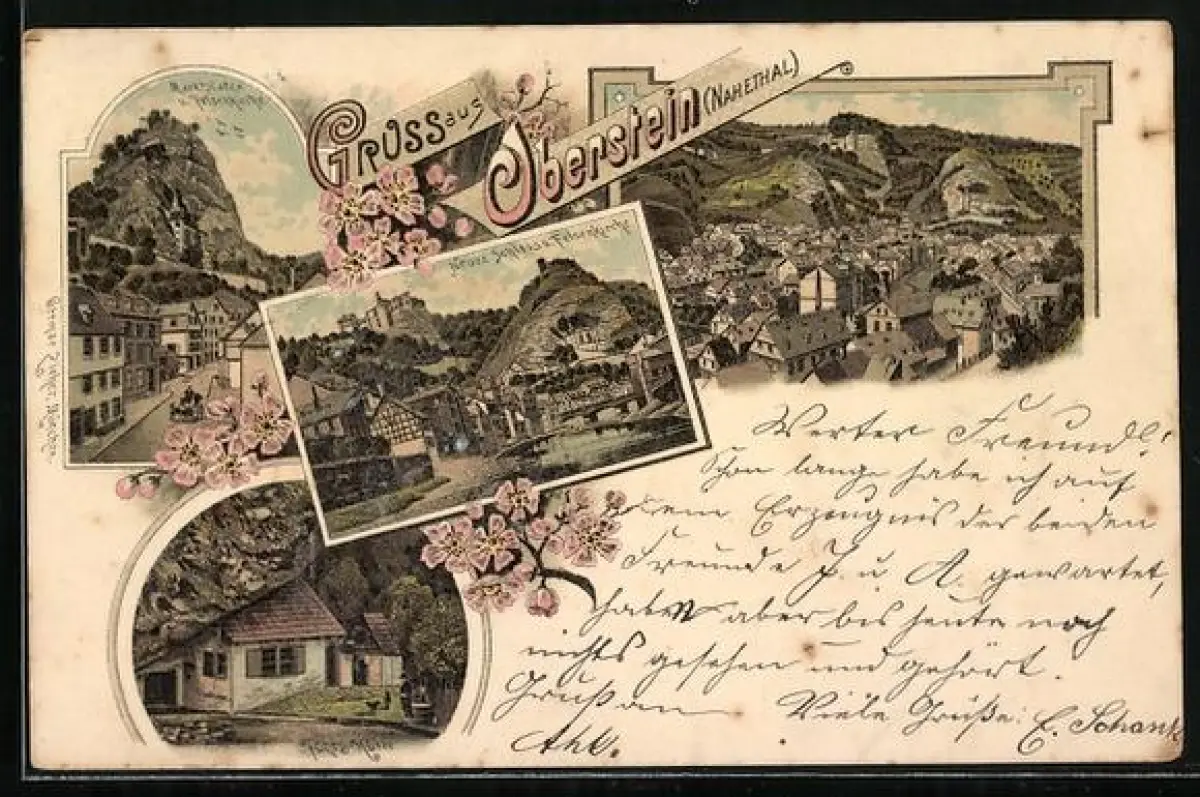 Marktplatz
u. Felsenkirche
GRUSS aus
Oberstein (NAHETHAL)
Neues Schloss u. Felsenkirche
Werter Freund!
Schon lange habe ich auf
Erzeugnis der beiden
Freunde J. u. A. gewartet,
habe aber bis heute noch
nichts gesehen und gehört.
Gruß an Viele Grüße: E. Schank
Ahl.